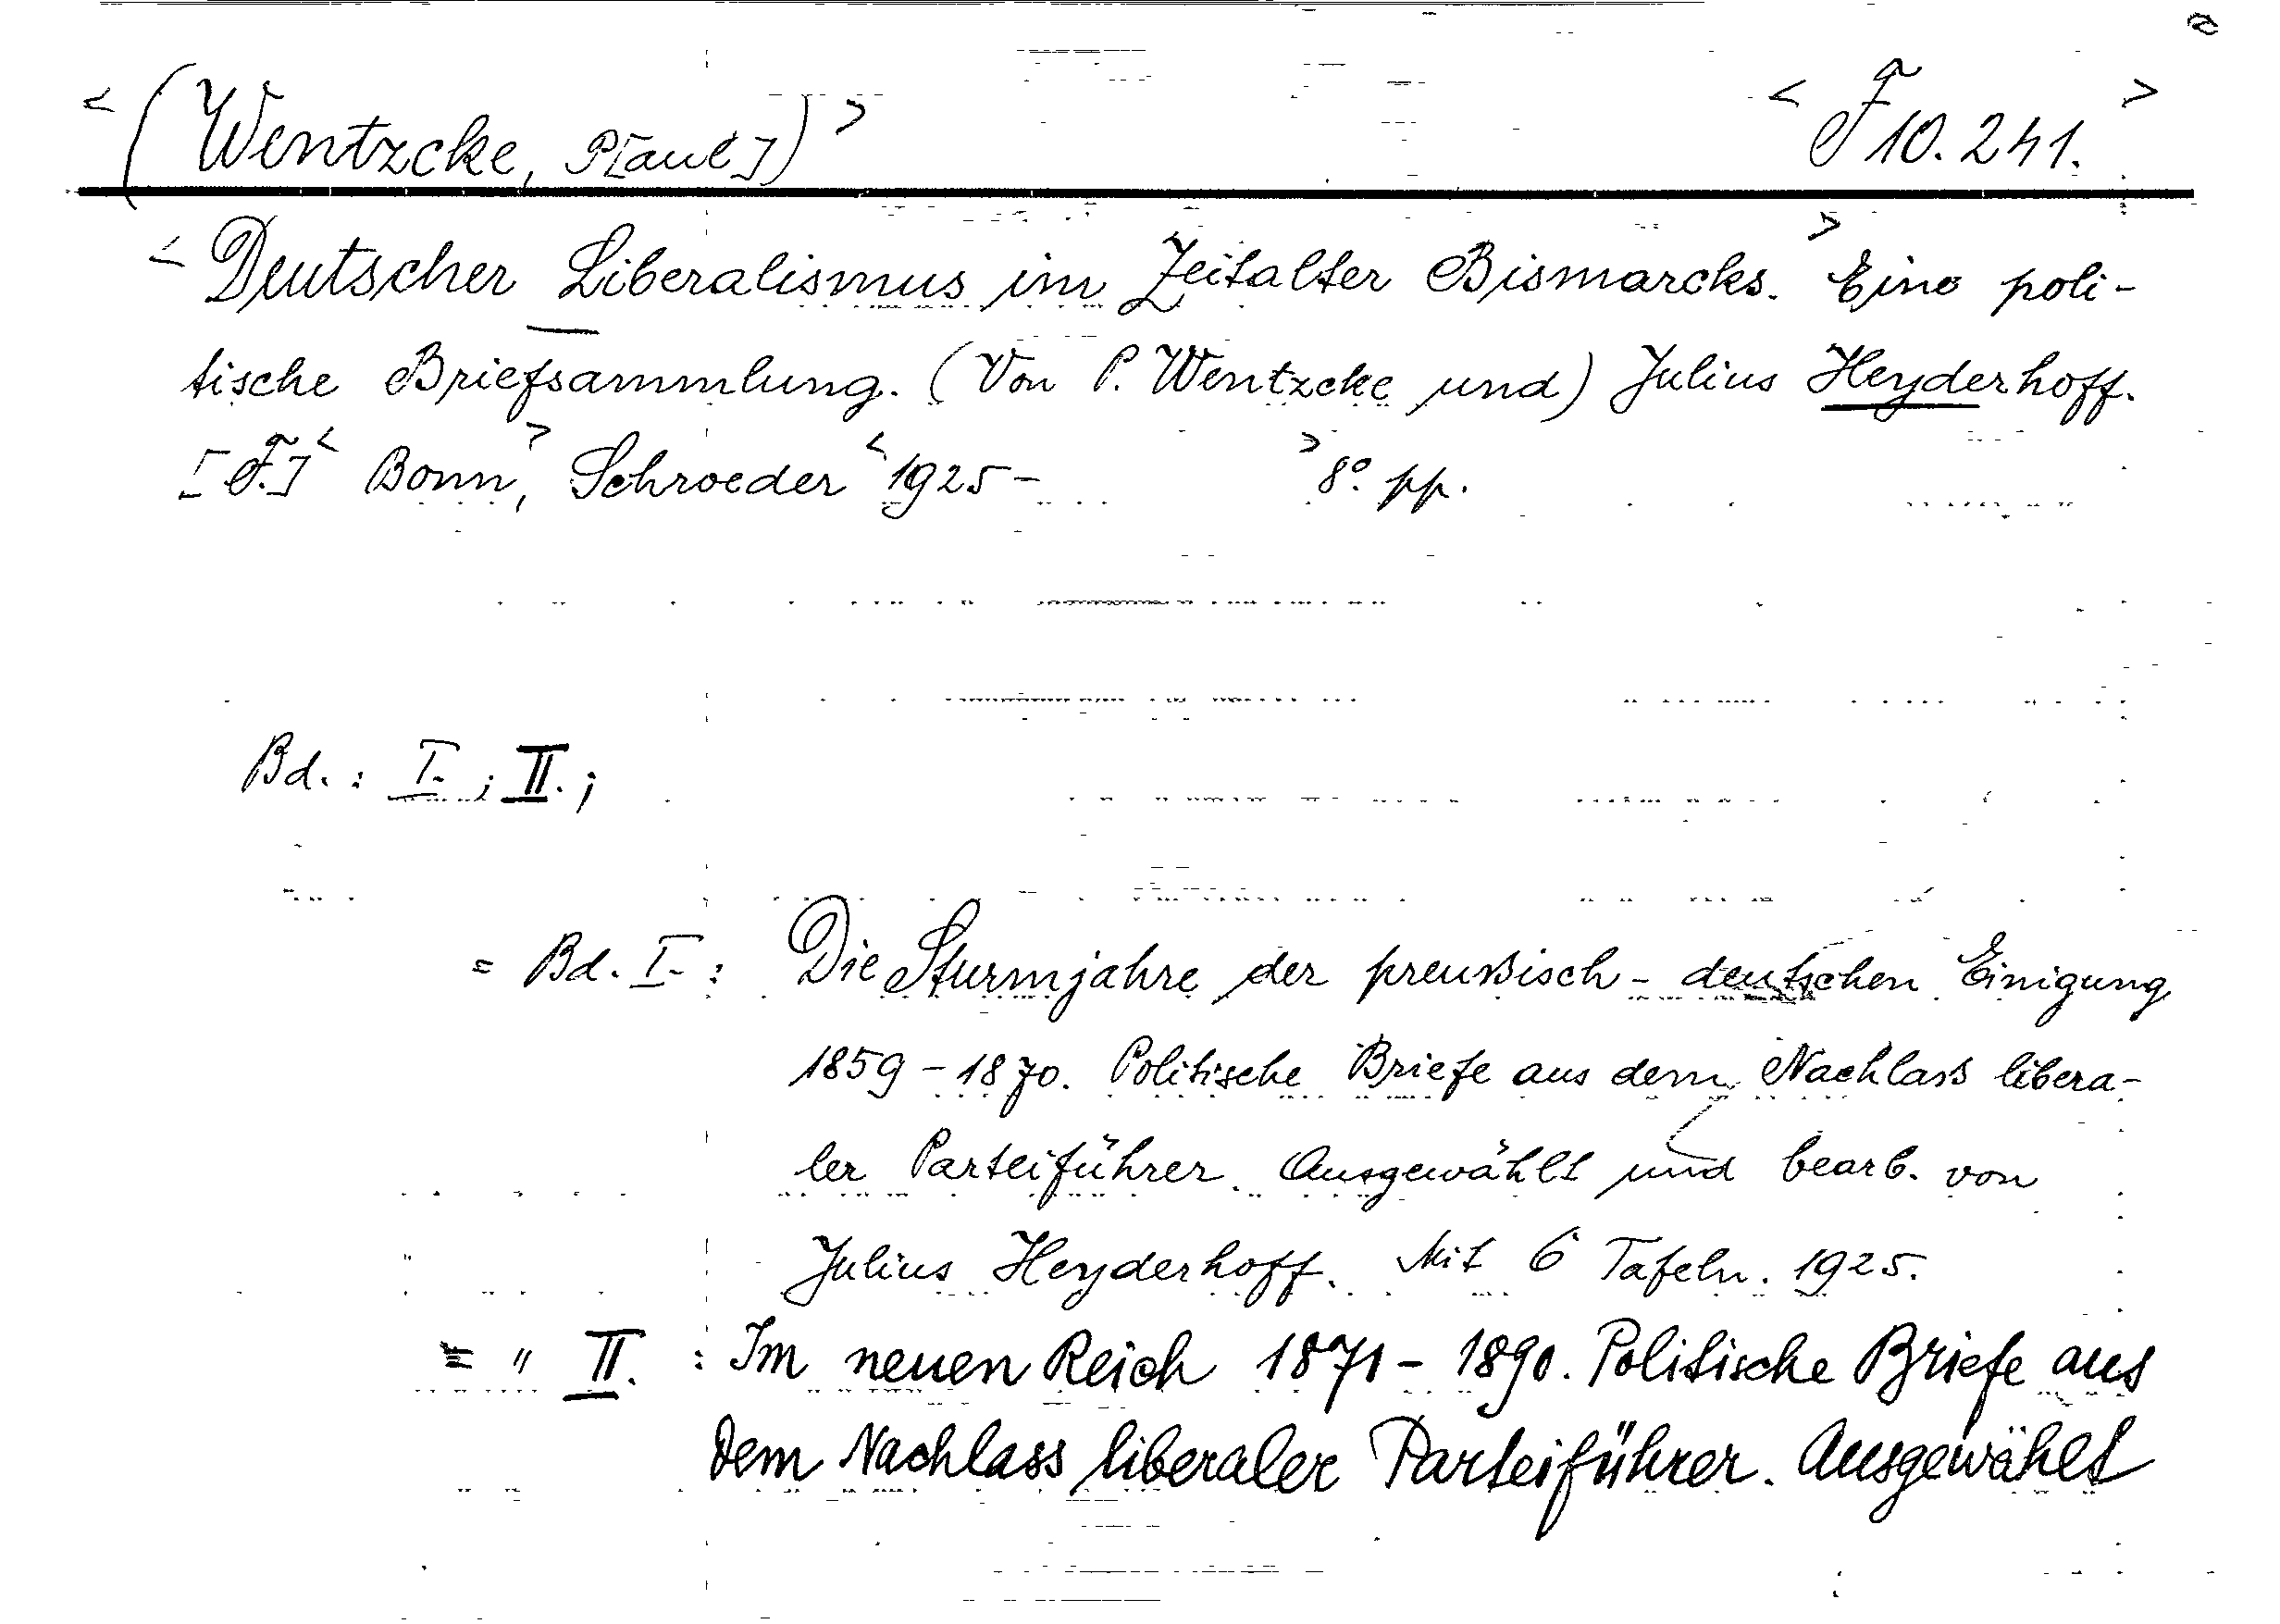 <(Wentzcke, P[aul])> <F 10.241.>
<Deutscher Liberalismus im Zeitalter Bismarcks.> Eine poli-
tische Briefsammlung. (Von P. Wentzcke und) Julius Heyderhoff.
[F.] <Bonn,> Schroeder <1925- > 8° pp.
Bd.: I.; II.;
= Bd. I.: Die Sturmjahre der preußisch-deutschen Einigung
1859-1870. Politische Briefe aus dem Nachlaß libera-
ler Parteiführer. Ausgewählt und bearb. von
Julius Heyderhoff. Mit 6 Tafeln. 1925.
= " II. : Im neuen Reich 1871-1890. Politische Briefe aus
dem Nachlass liberaler Parteiführer. Ausgewählt